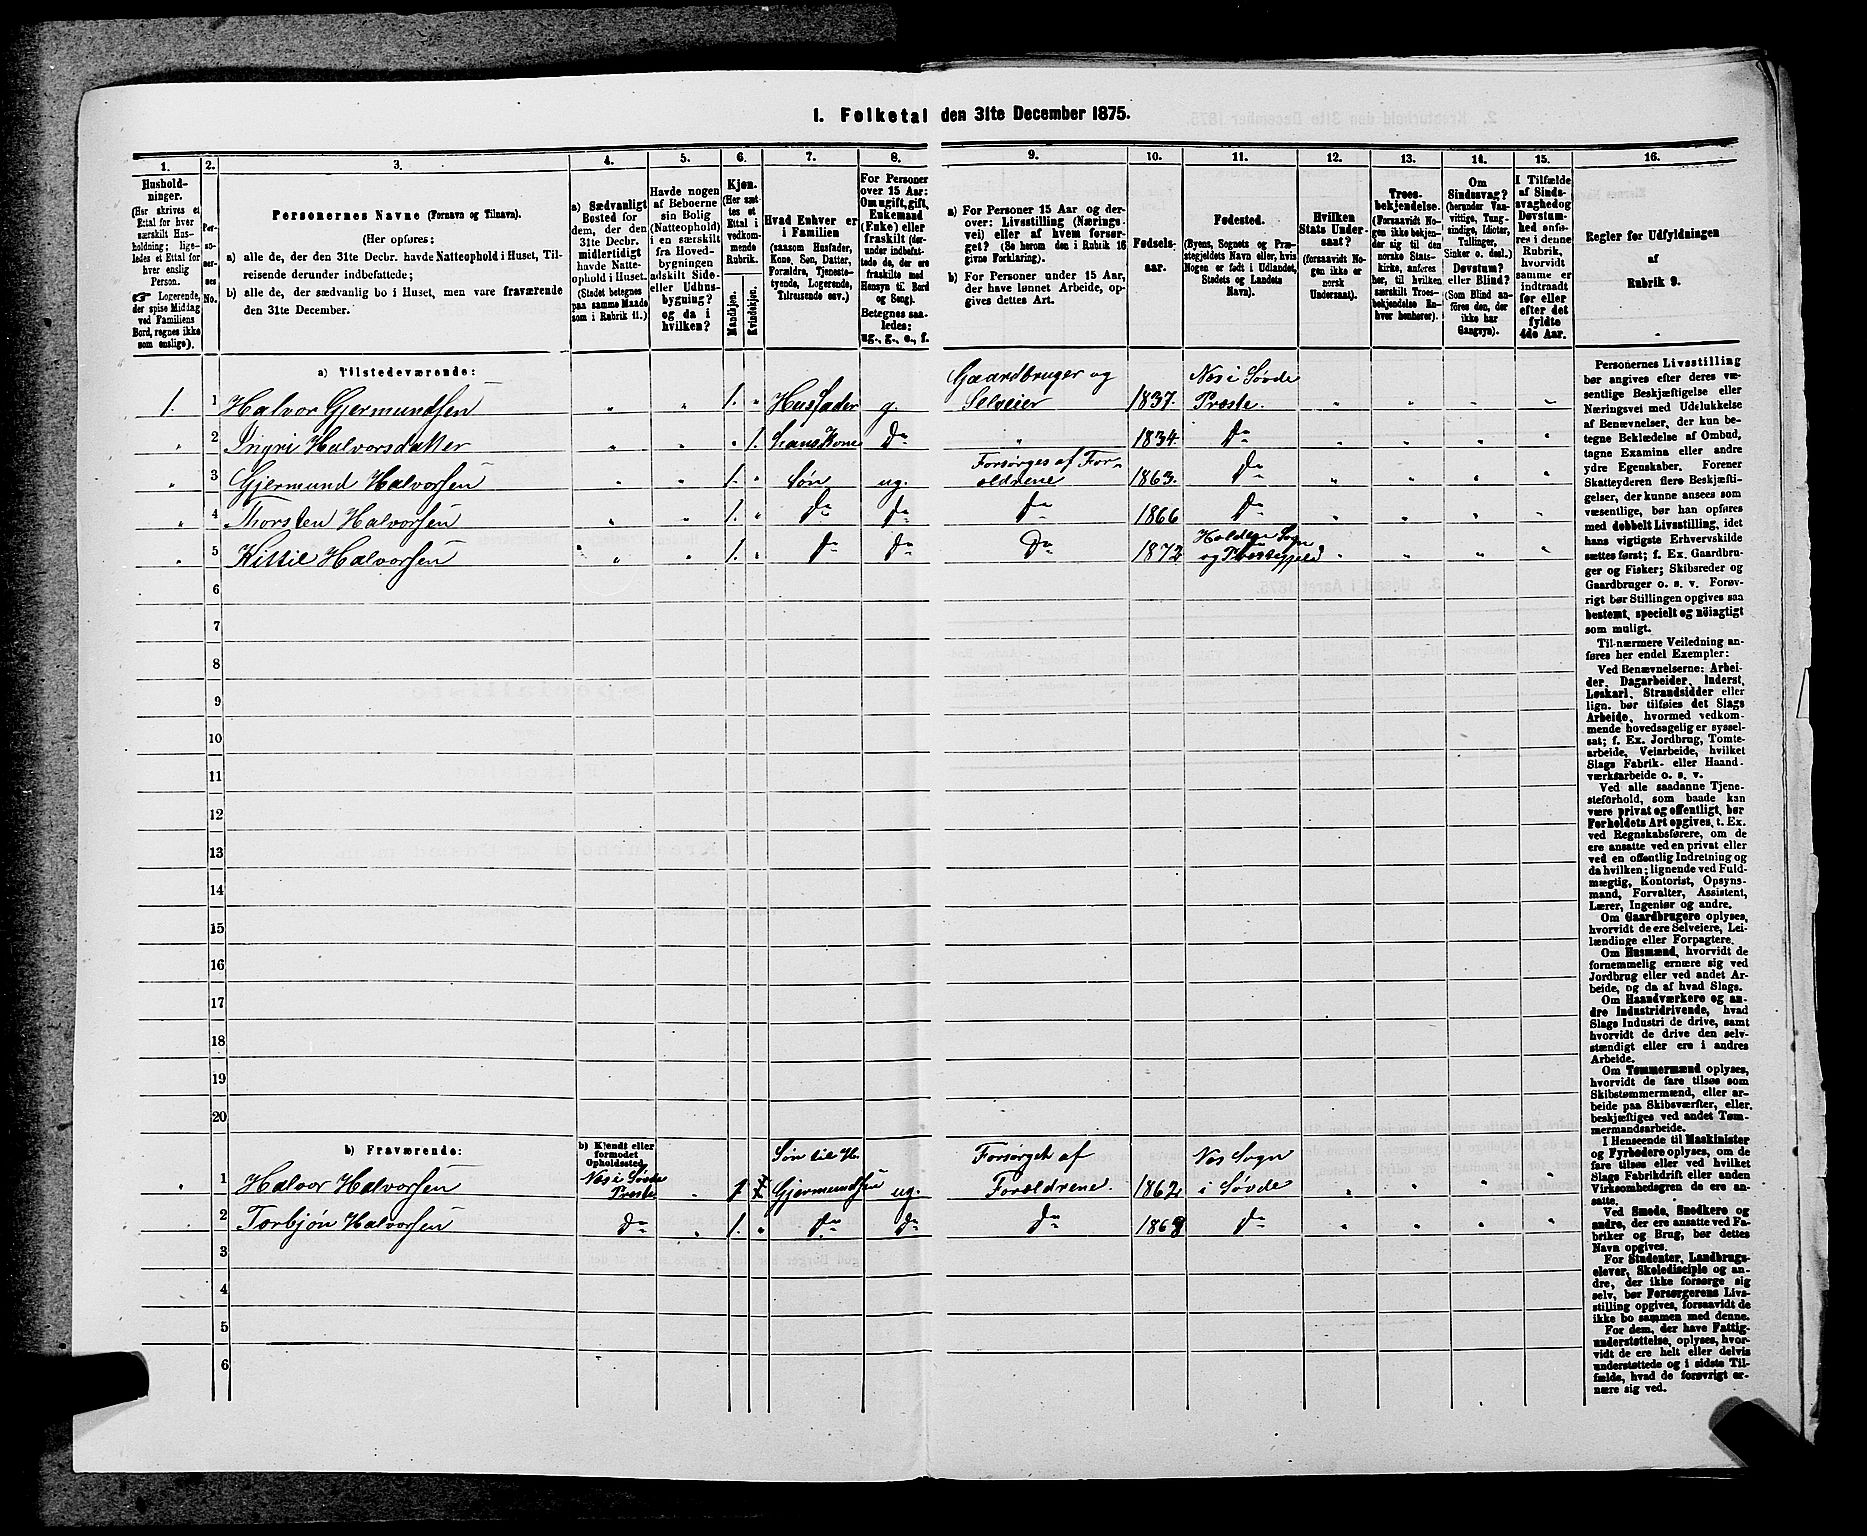 1. Folketal den 31te December 1875.
1.
Hushold-
ninger.
(Her skrives et
Ettal for hver
særskilt Hus-
holdning; lige-
ledes et Ettal for
hver enslig
Person.
☞ Logerende,
der spise Middag
ved Familiens
Bord, regnes ikke
som enslige).
2.
Per-
so-
ner-
nes
No.
3.
Personernes Navne (Fornavn og Tilnavn).
(Her opføres:
a) alle de, der den 31te Decbr. havde Natteophold i Huset, Til-
reisende derunder indbefattede;
b) alle de, der sædvanlig bo i Huset, men vare fraværende
den 31te December.
4.
a) Sædvanligt
Bosted for
dem, der den
31te Decbr.
midlertidigt
havde Natte-
ophold i Huset.
(Stedet betegnes
paa samme Maade
som i Rubrik 11.)
5.
Havde nogen
af Beboerne
sin Bolig
(Natteophold)
i en særskilt
fra Hoved-
bygningen
adskilt Side-
eller Udhus-
bygning?
og da i
hvilken?
6.
Kjøn.
(Her sæt-
tes et
Ettal i
vedkom-
mende
Rubrik.
Mandkjøn.
Kvindekjøn.
7.
Hvad Enhver er
i Familien
(saasom Husfader,
Kone, Søn, Datter,
Forældre, Tjeneste-
tyende, Logerende,
Tilreisende osv.)
8.
For Personer
over 15 Aar:
Om ugift, gift,
Enkemand
(Enke) eller
fraskilt (før-
under indbefat-
tede de, der ere
fraskilte med
Hensyn til Bord
og Seng).
Betegnes saa-
ledes:
ug., g., e., f.
9.
a) For Personer 15 Aar og der-
over: Livsstilling (Nærings-
vei) eller af hvem forsør-
get? (Se herom den i Rubrik 16
givne Forklaring).
b) For Personer under 15 Aar,
der have lønnet Arbeide, op-
gives dettes Art.
10.
Fødsels-
aar.
11.
Fødested.
(Byens, Sognets og Præ-
stegjeldets Navn eller, hvis
Nogen er født i Udlandet,
Stedets og Landets
Navn).
12.
Hvilken
Stats Under-
saat?
(forsaavidt No-
gen ikke er
norsk
Undersaat).
13.
Troes-
bekjendelse.
(Forsaavidt No-
gen ikke bekjen-
der sig til den
norske Stats-
kirke, anføres
her, til hvilken
særskilt Troes-
bekjendelse En-
hver henhører).
14.
Om
Sindssvag?
(herunder Van-
vittige, Tung-
sindige, Idioter,
Tullinger,
Sinker o. desl.).
Døvstum?
eller Blind?
(Som Blind an-
føres den, der
ikke har
Gangsyn).
15.
I Tilfælde
af Sinds-
svaghed og
Døvstum-
hed anfø-
res i denne
Rubrik,
hvorvidt
samme er
indtraadt
før eller
efter det
fyldte
4de Aar.
16.
Regler for Udfyldningen
af
Rubrik 9.
a) Tilstedeværende:
1. 1 Halvor Gjermundsen " " 1. " Husfader g. Gaardbruger og Selveier 1837. Nes i Søvde Præste. " " " "
" 2 Ingri Halvorsdatter " " " 1. hans Kone Do " 1834 Do " " " "
" 3 Gjermund Halvorsen " " 1. " Søn ug. Forsørges af For- ældrene 1863. Do " " " "
" 4 Thorsten Halvorsen " " 1. " Do Do Do 1866 Do " " " "
" 5 Kittil Halvorsen " " 1. " Do Do Do 1872 Holdens Sogn og Præstegjeld " " " "
6
7
8
9
10
11
12
13
14
15
16
17
18
19
20
b) Fraværende:
b) Kjendt eller
formodet
Opholdssted.
" 1 Halvor Halvorsen Nes i Søvde Præste " 1 Søn til H. Gjermundsen ug. Forsørget af Forældrene. 1862 Nes Sogn i Søvde " " " "
2 Torbjøn Halvorsen Do " 1. " Do Do Do 1868 Do " " " "
3
4
5
6
Personernes Livsstilling
bør angives efter deres væ-
sentlige Beskjæftigelse eller
Næringsvei med Udelukkelse
af Benævnelser, der kun be-
tegne Beklædelse af Ombud,
tagne Examina eller andre
ydre Egenskaber. Forener
Skatteyderen flere Beskjæfti-
gelser, der kunne ansees som
væsentlige, bør han opføres
med dobbelt Livsstilling, idet
hans vigtigste Erhvervskilde
sættes først; f. Ex. Gaardbru-
ger og Fisker; Skibsreder og
Gaardbruger o. s. v. Forøv-
rigt bør Stillingen opgives saa
bestemt, specielt og nöiagtigt
som muligt.
Til nærmere Veiledning an-
føres her endel Exempler:
Ved Benævnelserne: Arbei-
der, Dagarbeider, Inderst,
Løskarl, Strandsidder eller
lign. bør tilføies det Slags
Arbeide, hvormed vedkom-
mende hovedsagelig er syssel-
sat; f. Ex. Jordbrug, Tomte-
arbeide, Veiarbeide, hvilket
Slags Fabrik- eller Haand-
værksarbeide o. s. v.
Ved alle saadanne Tjene-
steforhold, som baade kan
være privat og offentligt, bør
Forholdets Art opgives, t. Ex.
ved Regnskabsførere, om de
ere ansatte ved en privat eller
ved en offentlig Indretning og
da hvilken; lignende ved Fuld-
mægtig, Kontorist, Opsyns-
mand, Forvalter, Assistent,
Lærer, Ingeniør og andre.
Om Gaardbrugere oplyses,
hvorvidt de ere Selveiere, Lei-
lændinge eller Forpagtere.
Om Husmænd, hvorvidt de
fornemmelig ernære sig ved
Jordbrug eller ved andet Ar-
beide, og da af hvad Slags.
Om Haandværkere og an-
dre Industridrivende, hvad
Slags Industri de drive, samt
hvorvidt de drive den selv-
stændigt eller ere i andres
Arbeide.
Om Tømmermænd oplyses,
hvorvidt de fare tilsøs som
Skibstømmermænd, eller ar-
beide paa Skibsværfter, eller
beskjæftiges ved andet Tøm-
mermandsarbeide.
I Henseende til Maskinister
og Fyrbødere oplyses, om de
fare tilsøs eller ved hvilket
Slags Fabrikdrift eller anden
Virksomhedsgren de ere an-
satte.
Ved Smede, Snedkere og
andre, der ere ansatte ved Fa-
briker og Brug, bør dettes
Navn opgives.
For Studenter, Landbrugs-
elever, Skoledisciple og an-
dre, der ikke forsørge sig
selv, bør Forsørgerens Livs-
stilling opgives, forsaavidt de
ikke bo sammen med denne.
For dem, der have Fattig-
understøttelse, oplyses, hvor-
vidt de ere helt eller delvis
understøttede og i sidste Til-
fælde, hvad de forøvrigt er-
nære sig ved.